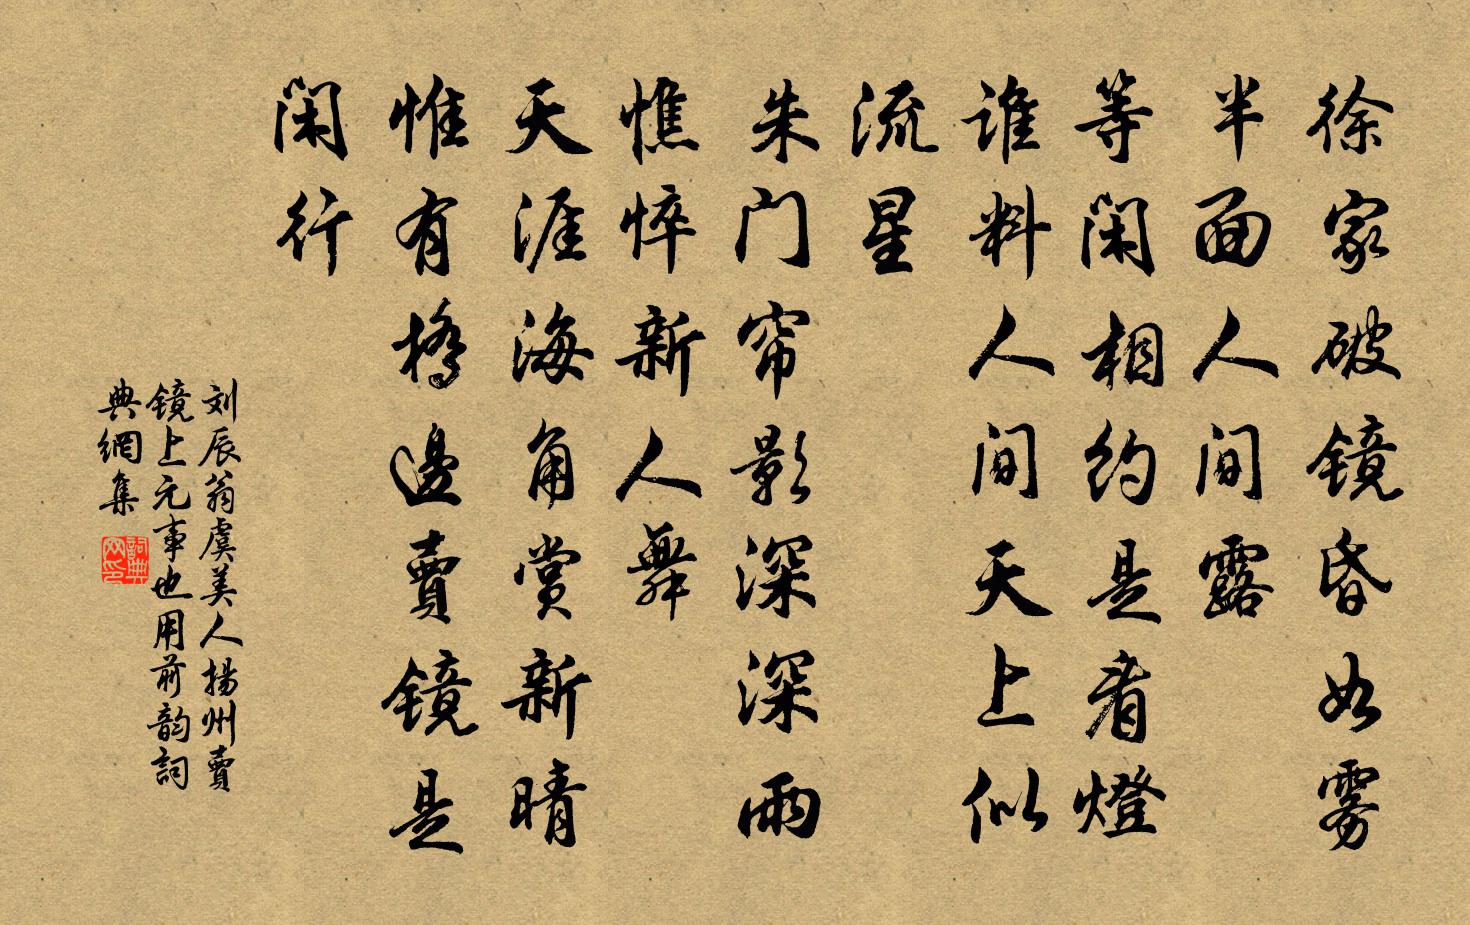 徐家破镜昏如雾
半面人间露
等闲相约是看燈
谁料人间天上似
流星
朱门帘影深深雨
憔悴新人舞
天涯海角赏新晴
惟有橋邊賣镜是
闲行
刘辰翁虞美人揚州賣
镜上元事也用前韵詞
典網集
詞典网印